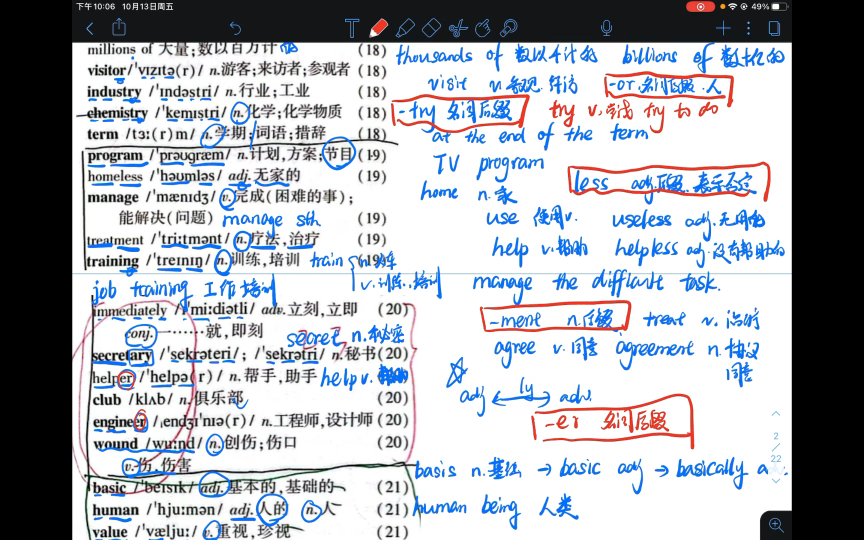 下午10:06 10月13日周五
49%
millions of 大量;数以百万计的 (18)
thousands of 数以千计的 billions of 数十亿的
visitor/'vɪzɪtə(r)/ n.游客;来访者;参观者 (18)
visit v.参观、拜访 -or.名词后缀.人
industry /'ɪndəstri/ n.行业;工业 (18)
chemistry /'kemɪstri/ n.化学;化学物质 (18)
-try 名词后缀 try v.尝试 try to do
term /tɜː(r)m/ n.学期;词语;措辞 (18)
at the end of the term
program /'prəʊɡræm/ n.计划,方案;节目 (19)
TV program
homeless /'həʊmləs/ adj.无家的 (19)
home n.家 less adj.后缀.表示否定
manage /'mænɪdʒ/ v.完成(困难的事);
能解决(问题) manage sth (19)
use 使用v. useless adj.无用的
treatment /'triːtmənt/ n.疗法,治疗 (19)
help v.帮助 helpless adj.没有帮助的
training /'treɪnɪŋ/ n.训练,培训 (19)
train n.火车
v.训练、培训
manage the difficult task.
job training 工作培训
immediately /ɪ'miːdiətli/ adv.立刻,立即 (20)
-ment n.后缀 treat v.治疗
conj.一……就,即刻
secret n.秘密
secretary /'sekrəteri/; /'sekrətri/ n.秘书(20)
agree v.同意 agreement n.协议
同意
helper /'helpə(r)/ n.帮手,助手 (20)
help v.帮助
club /klʌb/ n.俱乐部 (20)
adj ly adv.
engineer /ˌendʒɪ'nɪə(r)/ n.工程师,设计师 (20)
-er 名词后缀
wound /wuːnd/ n.创伤;伤口 (20)
v.伤,伤害
basis n.基础 → basic adj → basically
basic /'beɪsɪk/ adj.基本的,基础的 (21)
human /'hjuːmən/ adj.人的 n.人 (21)
human being 人类
value /'væljuː/ v.重视,珍视 (21)
2
22